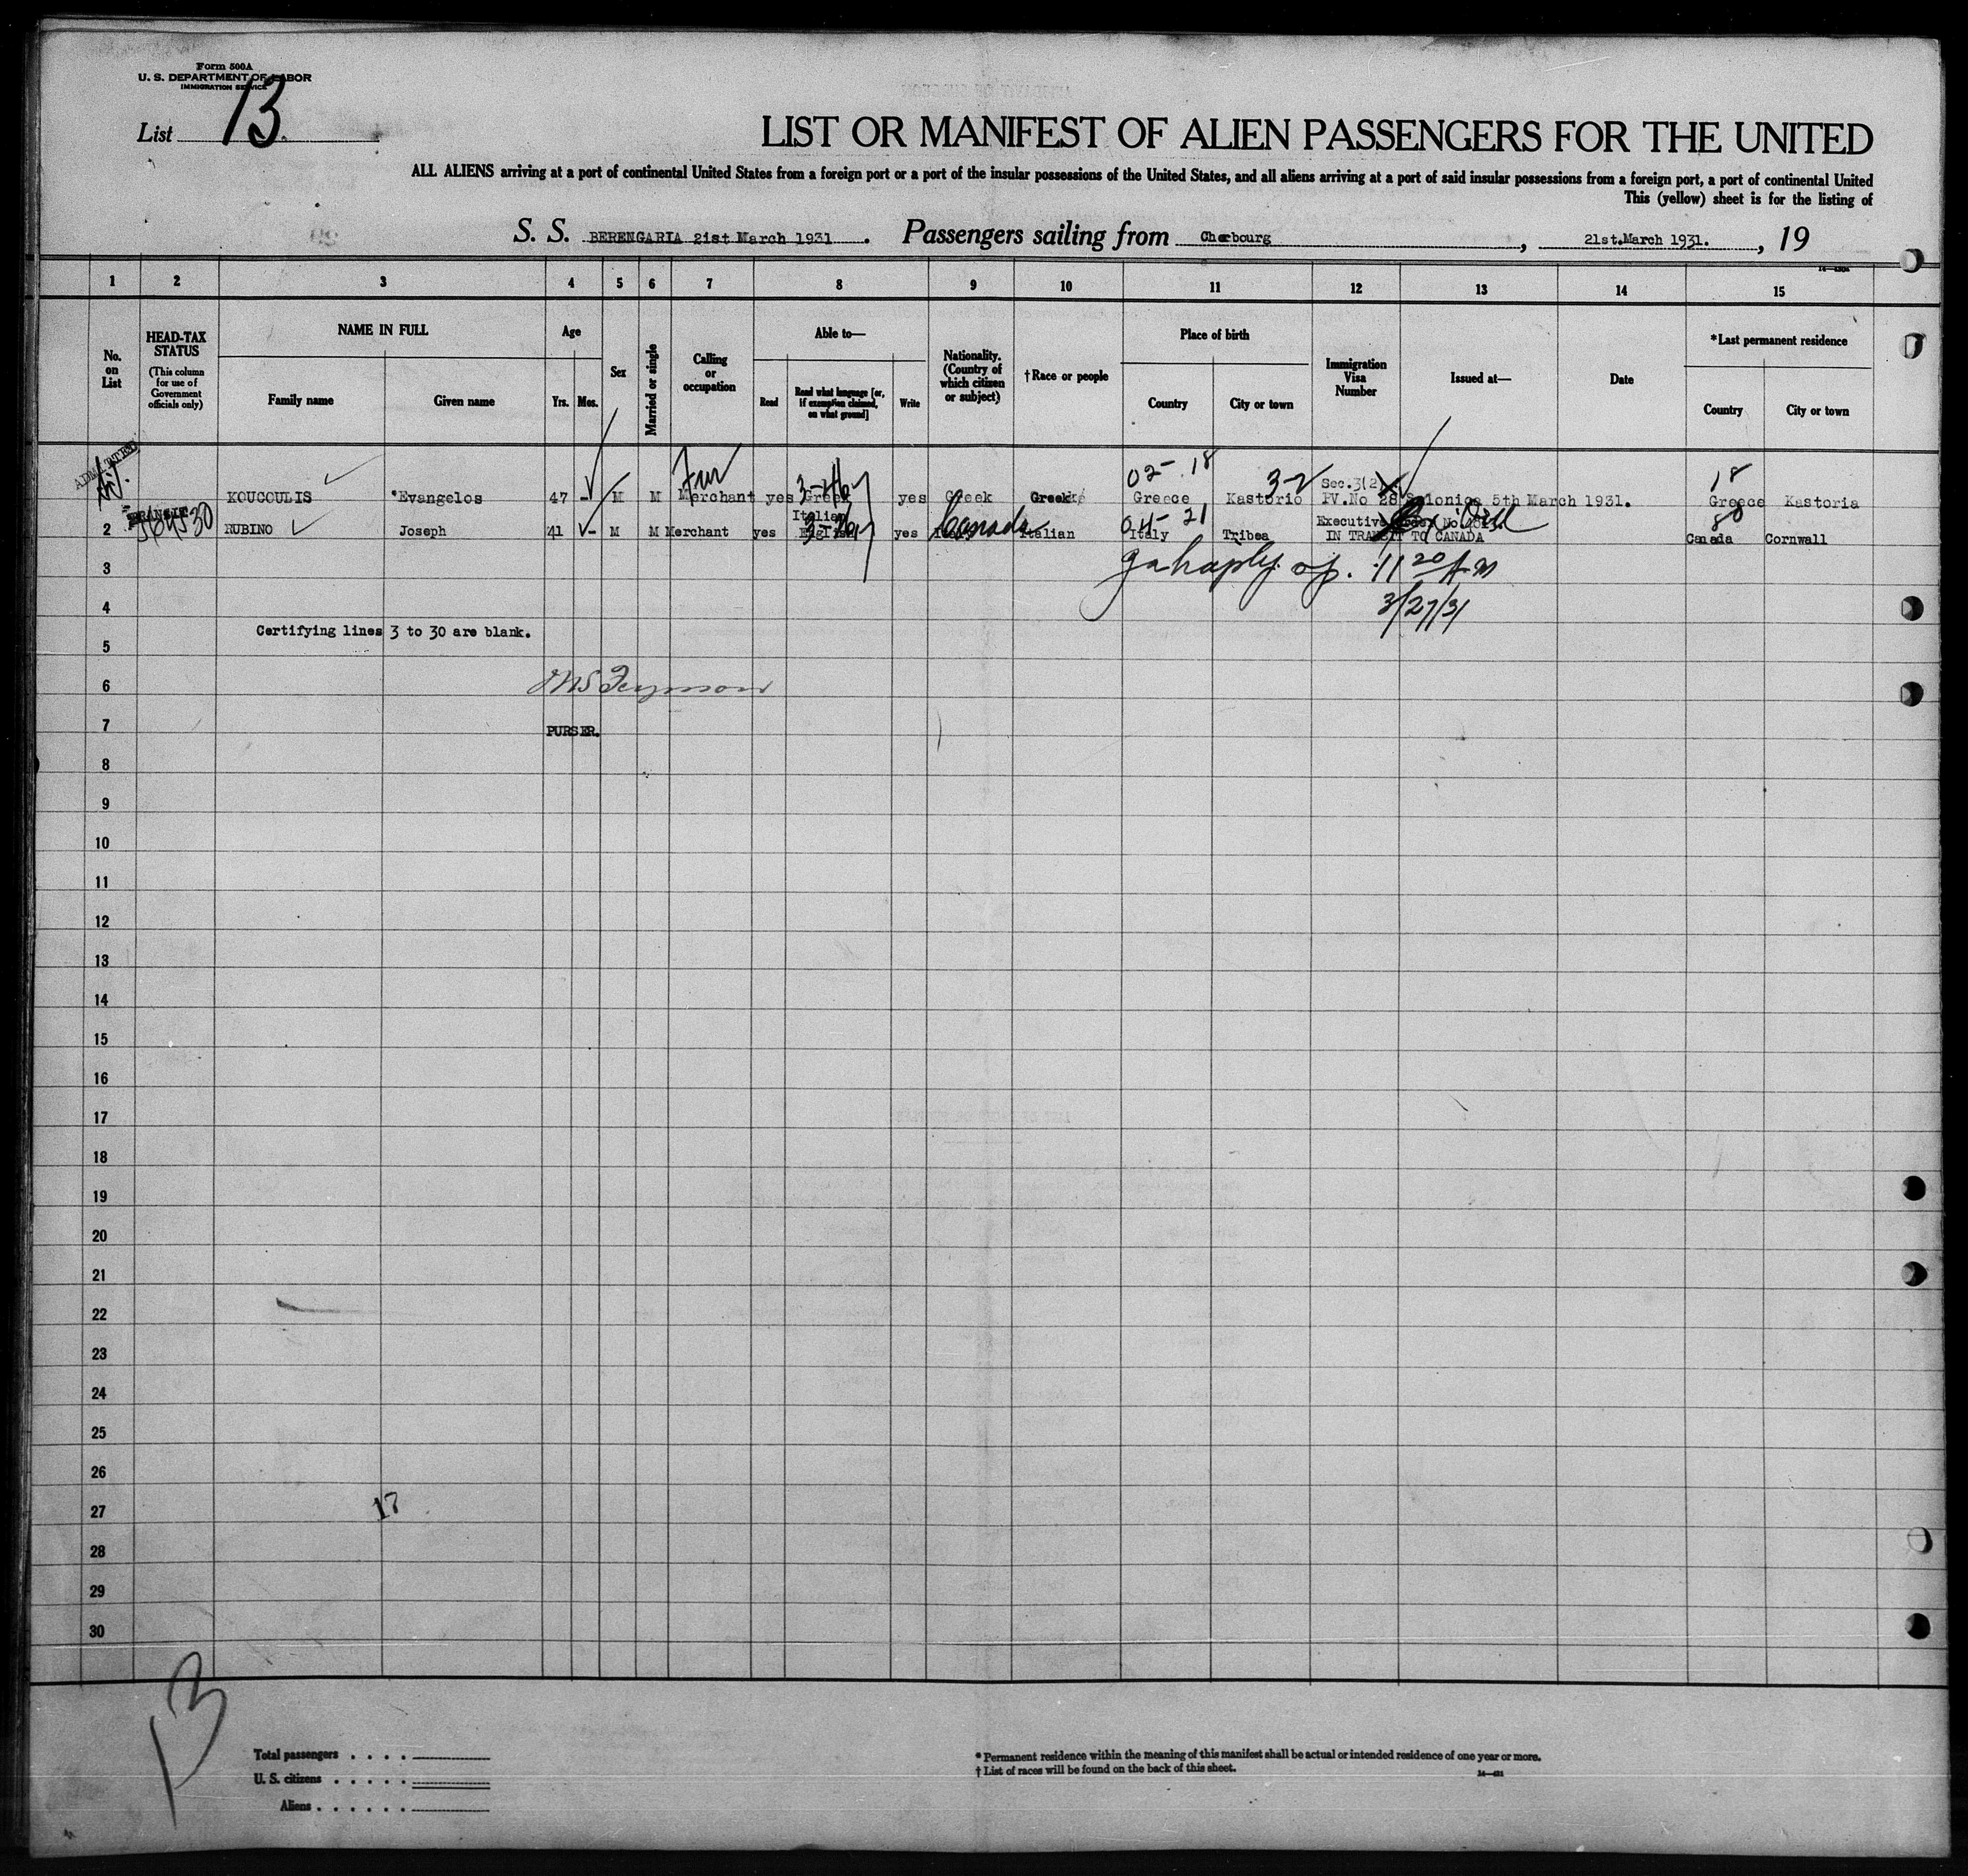 Form 500A
U. S. DEPARTMENT OF LABOR
IMMIGRATION SERVICE
List 13.
LIST OR MANIFEST OF ALIEN PASSENGERS FOR THE UNITED
ALL ALIENS arriving at a port of continental United States from a foreign port or a port of the insular possessions of the United States, and all aliens arriving at a port of said insular possessions from a foreign port, a port of continental United
This (yellow) sheet is for the listing of
S. S. BERENGARIA 21st March 1931. Passengers sailing from Cherbourg, 21st.March 1931., 19
1 2 3 4 5 6 7 8 9 10 11 12 13 14 15
No. on List
HEAD-TAX STATUS
(This column for use of Government officials only)
NAME IN FULL
Family name Given name
Age
Yrs. Mos.
Sex
Married or single
Calling or occupation
Able to—
Read
Read what language [or, if exemption claimed, on what ground]
Write
Nationality. (Country of which citizen or subject)
†Race or people
Place of birth
Country City or town
Immigration Visa Number
Issued at—
Date
*Last permanent residence
Country City or town
ADMITTED
Fur
02- 18 3-2 Sec.3(2) 18
KOUCOULIS Evangelos 47 - M M Merchant yes Greek yes Greek Greek Greece Kastorio PV.No 28 Salonica 5th March 1931. Greece Kastoria
TRANSIT
Italian 04- 21 Executive Order No. 80
2 RUBINO Joseph 41 - M M Merchant yes English yes Canada Italian Italy Tribea IN TRANSIT TO CANADA Canada Cornwall
3
11 20 AM
4
3/27/31
Certifying lines 3 to 30 are blank.
5
6
7
PURSER.
8
9
10
11
12
13
14
15
16
17
18
19
20
21
22
23
24
25
26
27
17
28
29
30
13
Total passengers
U. S. citizens
Aliens
* Permanent residence within the meaning of this manifest shall be actual or intended residence of one year or more.
† List of races will be found on the back of this sheet.